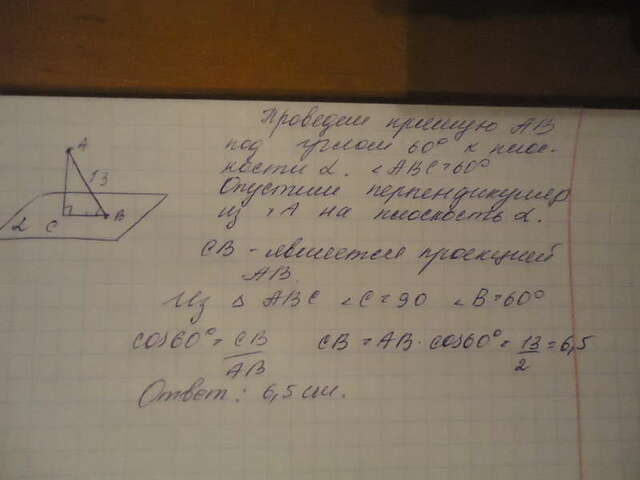 Проведем прямую АВ
под углом 60° к плос-
кости α. ∠ABC=60°
Опустим перпендикуляр
из т А на плоскость α.
СВ - является проекцией
АВ.
Из Δ АВС ∠С=90 ∠В=60°
cos60° = CB/AB CB = AB · cos60° = 13/2 = 6,5
Ответ: 6,5 см.
A
13
α C B